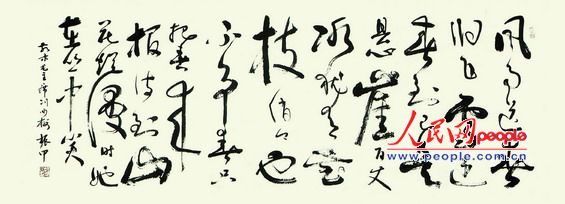 风雨送春
归飞雪迎
春到已是
悬崖百丈
冰犹有花
枝俏俏也
不争春只
把春来
报待到山
花烂漫时她
在丛中笑
毛主席词咏梅 振甲
人民网 people
www.people.com.cn